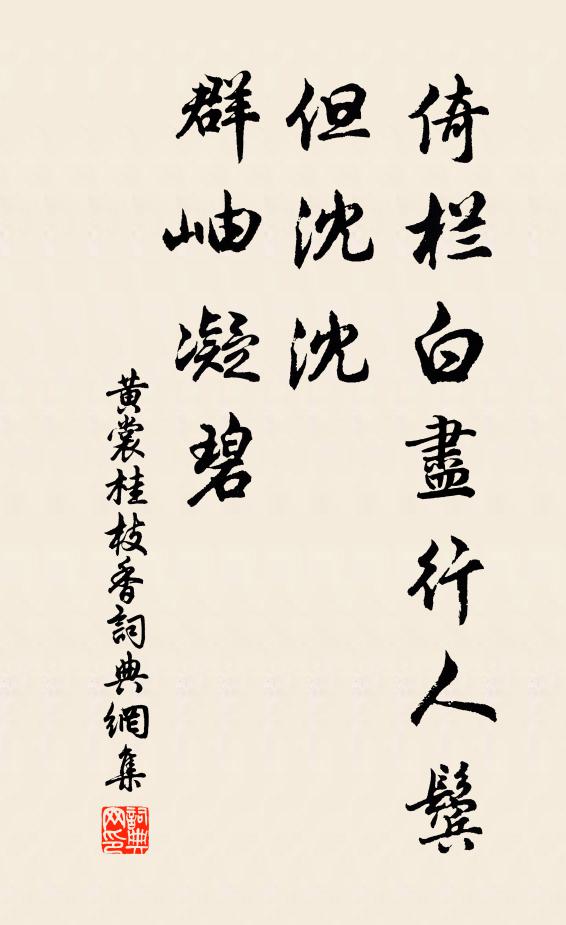 倚栏白盡行人鬓
但沈沈
群岫凝碧
黄裳桂枝香詞典網集
詞典网印